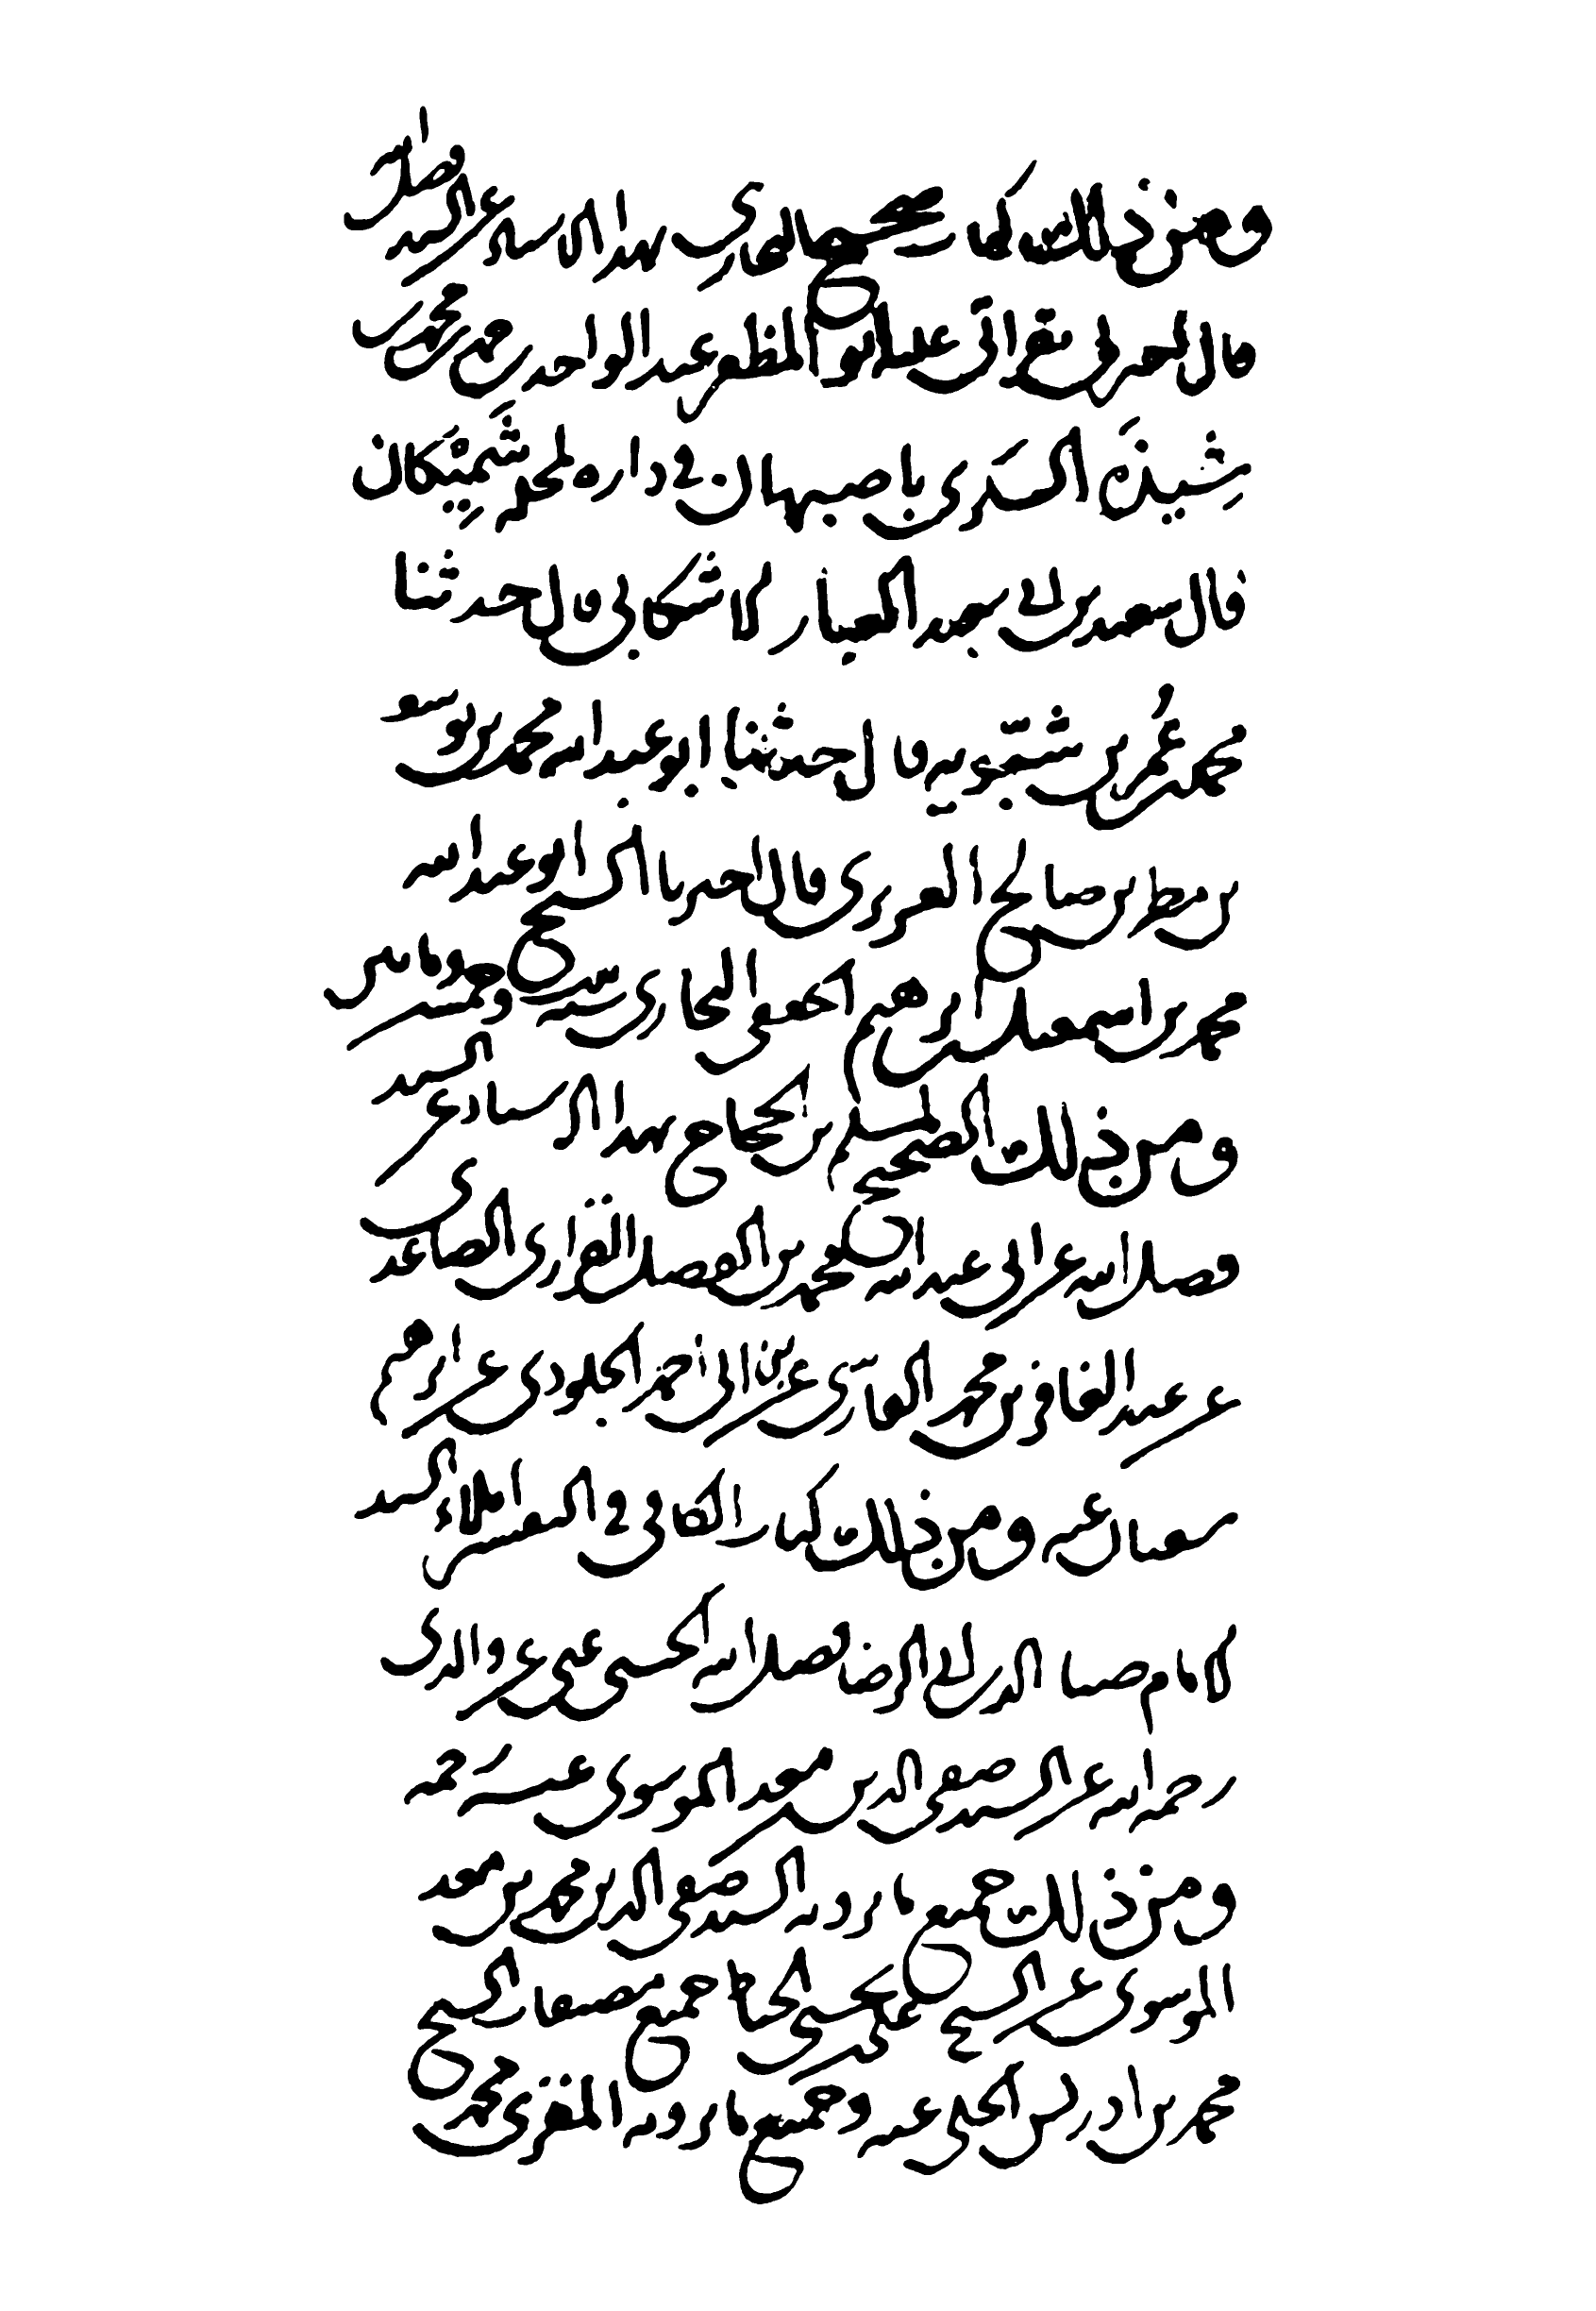 ومن ذلك كتاب صحيح البخاري بهذا الاسناد عن السيد فضل الله
قال اخبرني بقراتي عليه ابو المظفر عبد الواحد بن حمد بن محمد بن
شِيذَه السكري باصبهان في داره شَمِيْكان
قال سعيد بن ابي سعيد العيار قال حدثنا
محمد بن عُمر بن شبّويه قال حدثنا ابو عبد الله محمد بن يوسف
بن مطر بن صالح الفربري قال اخبرنا الشيخ ابو عبد الله
محمد بن اسمعيل بن ابرهيم الجعفي البخاري
ومن ذلك الصحيح لمسلم بن الحجاج بهذا الاسناد عن السيد
فضل الله عن ابي عبد الله محمد بن الفضل الفراوي الصاعدي
عن عبد الغافر بن محمد الفارسي عن ابي أحمد الجلودي عن ابرهيم
بن سفيان عنه ومن ذلك كتاب الكافي في التفسير املاء السيد
الامام ضيا الدين ابي الرضا فضل الله الحسني عني عن والدي
رحمه الله عن السيد صفي الدين بن معد الموسوي عنه رحمه
ومن ذلك جميع ما رواه السيد صفي الدين محمد بن معد
الموسوي عن الشيخ علي بن يحيى الخياط جميع مصنفات الشيخ
محمد بن ادريس الحلي عنه وجميع ما رواه المقرئ محمد